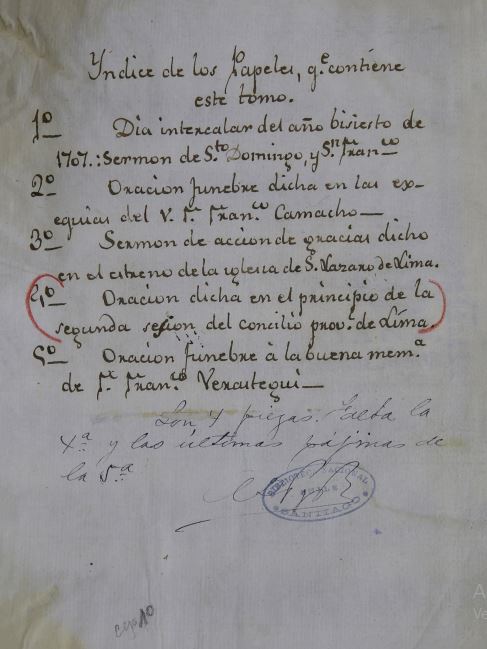 Yndice de los Papeles, q.e contiene
este tomo.
1º Dia intercalar del año bisiesto de
1707.: Sermon de S.to Domingo, y S.n Fran.co
2º Oracion funebre dicha en las ex-
equias del V. P. Fran.co Camacho
3º Sermon de accion de gracias dicho
en el estreno de la yglesia de S. Lazaro de Lima.
4º Oracion dicha en el principio de la
segunda sesion del concilio prov.l de Lima.
5º Oracion funebre à la buena mem.a
de P. Fran.co Verastegui
Son 4 piezas. Falta la
4.a y las últimas pájinas de
la 5.a
BIBLIOTECA NACIONAL
CHILE
SANTIAGO